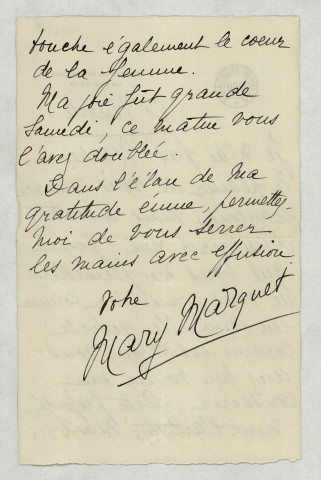 touche également le coeur
de la femme.
Ma joie fut grande
Samedi, ce matin vous
l'avez doublée.
Dans l'élan de ma
gratitude émue, permettez-
moi de vous serrer
les mains avec effusion.
Votre
Mary Marquet